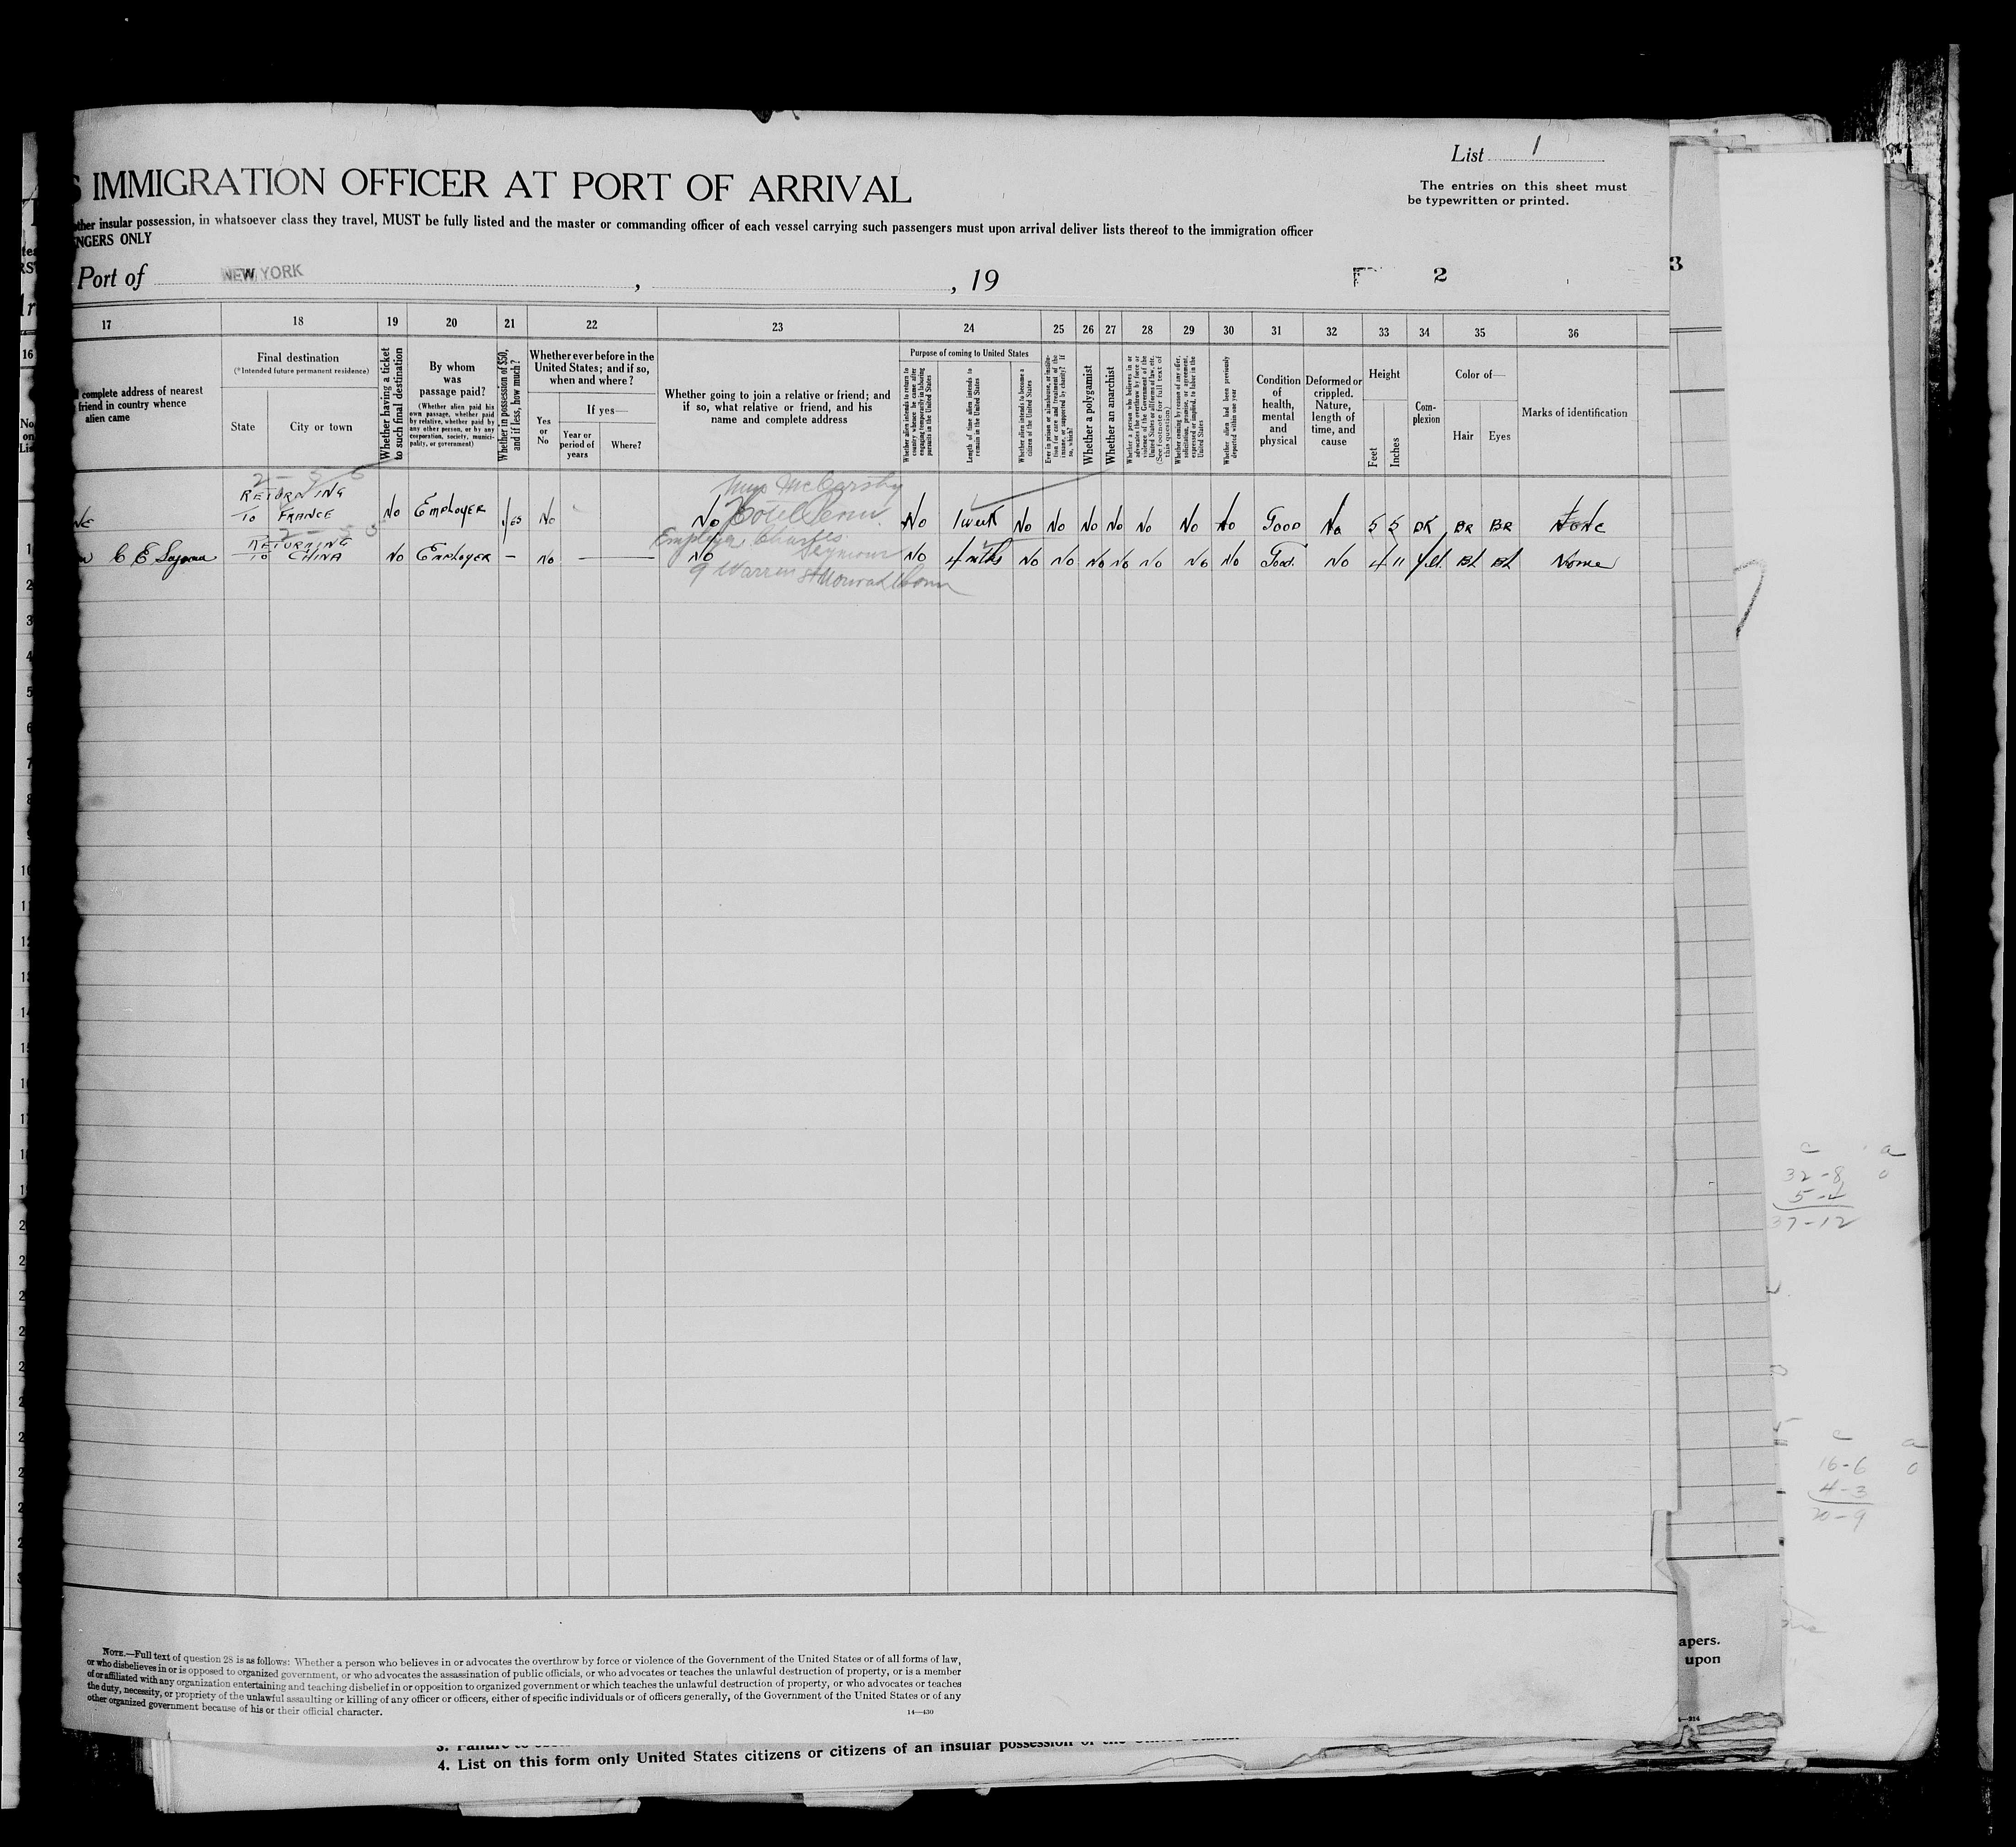 List 1
The entries on this sheet must
be typewritten or printed.
S IMMIGRATION OFFICER AT PORT OF ARRIVAL
other insular possession, in whatsoever class they travel, MUST be fully listed and the master or commanding officer of each vessel carrying such passengers must upon arrival deliver lists thereof to the immigration officer
NGERS ONLY
Port of NEW YORK , , 19
2
3
17 18 19 20 21 22 23 24 25 26 27 28 29 30 31 32 33 34 35 36
complete address of nearest
friend in country whence
alien came
Final destination
(*Intended future permanent residence)
State
City or town
Whether having a ticket
to such final destination
By whom
was
passage paid?
(Whether alien paid his
own passage, whether paid
by relative, whether paid by
any other person, or by any
corporation, society, munici-
pality, or government)
Whether in possession of $50,
and if less, how much?
Whether ever before in the
United States; and if so,
when and where?
Yes
or
No
If yes—
Year or
period of
years
Where?
Whether going to join a relative or friend; and
if so, what relative or friend, and his
name and complete address
Purpose of coming to United States
Whether alien intends to return to
country whence he came after
engaging temporarily in laboring
pursuits in the United States
Length of time alien intends to
remain in the United States
Whether alien intends to become a
citizen of the United States
Ever in prison or almshouse, or institu-
tion for care and treatment of the
insane, or supported by charity? If
so, which?
Whether a polygamist
Whether an anarchist
Whether a person who believes in or
advocates the overthrow by force or
violence of the Government of the
United States or all forms of law, etc.
(See footnote for full text of
this question)
Whether coming by reason of any offer,
solicitation, promise, or agreement,
expressed or implied, to labor in the
United States
Whether alien had been previously
deported within one year
Condition
of
health,
mental
and
physical
Deformed or
crippled.
Nature,
length of
time, and
cause
Height
Feet
Inches
Com-
plexion
Color of—
Hair
Eyes
Marks of identification
Miss McCarthy
RETURNING
TO FRANCE No EMPLOYER YES No No Hotel Penn. No 1 week No No No No No No No GOOD No 5 5 DK BR BR NONE
Employer Charles
Seymour
RETURNING
C E TO CHINA No EMPLOYER — No — No No 4 mths No No No No No No No Good. No 4 11 Yel. BL BL None
9 Warren St Conn
1
2
3
4
5
6
7
8
9
10
11
12
13
14
15
16
17
18
c a
32-8 0
5-4
37-12
c a
16-6 0
4-3
20-9
NOTE.—Full text of question 28 is as follows: Whether a person who believes in or advocates the overthrow by force or violence of the Government of the United States or of all forms of law,
or who disbelieves in or is opposed to organized government, or who advocates the assassination of public officials, or who advocates or teaches the unlawful destruction of property, or is a member
of or affiliated with any organization entertaining and teaching disbelief in or opposition to organized government or which teaches the unlawful destruction of property, or who advocates or teaches
the duty, necessity, or propriety of the unlawful assaulting or killing of any officer or officers, either of specific individuals or of officers generally, of the Government of the United States or of any
other organized government because of his or their official character.
14—430
apers.
upon
4. List on this form only United States citizens or citizens of an insular possession